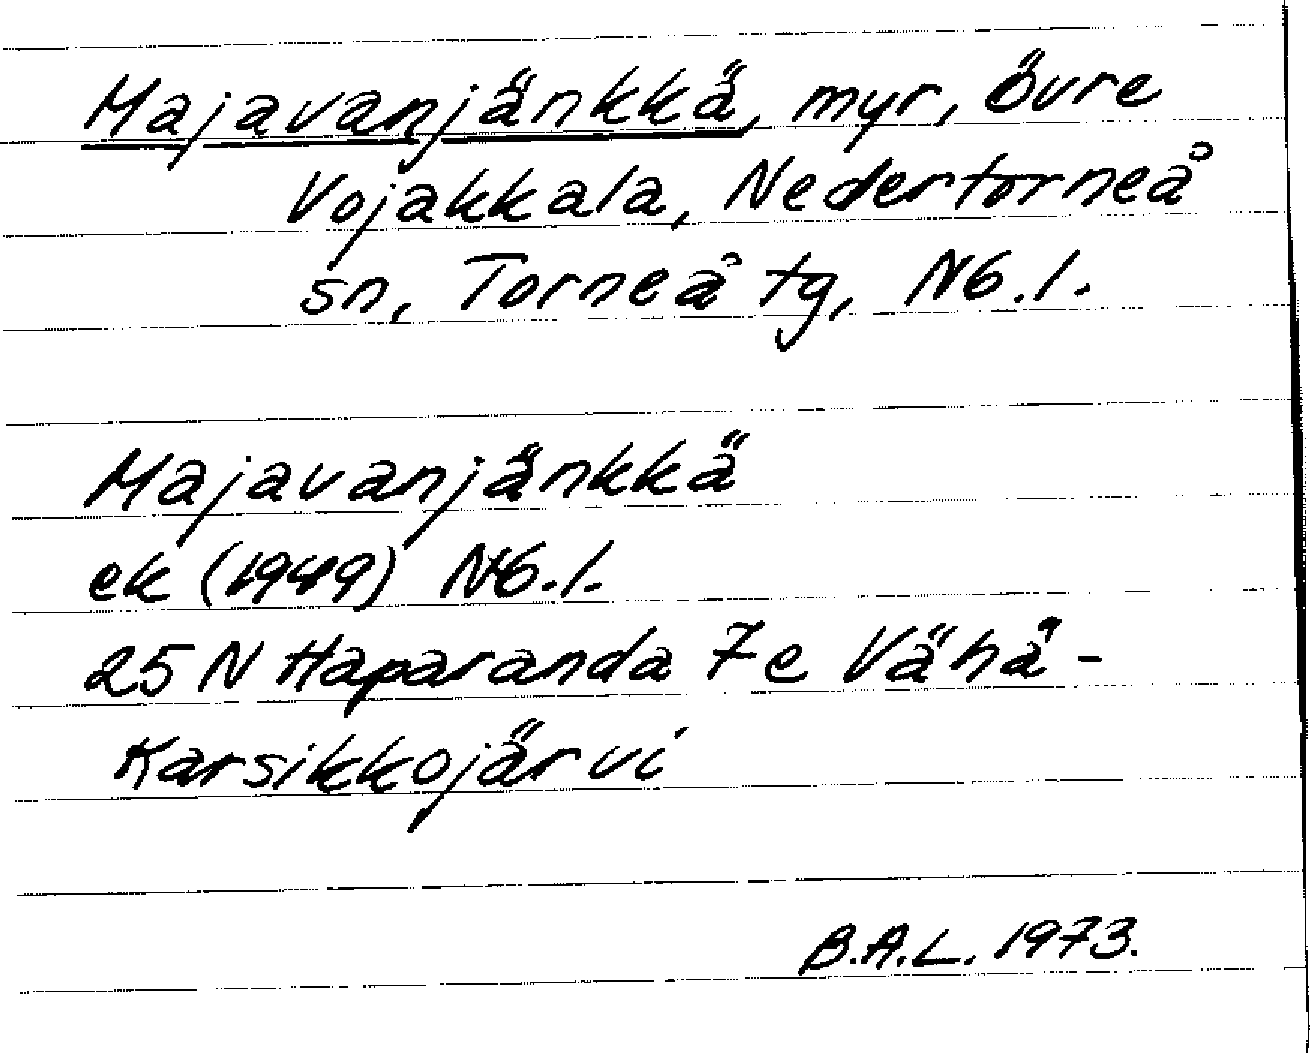 Majavanjänkkä, myr, övre
Vojakkala, Nedertorneå
sn, Torneå tg, Nb.l.
Majavanjänkkä
ek (1949) Nb.l.
25 N Haparanda 7e Vähä-
Karsikkojärvi
B.A.L. 1973.